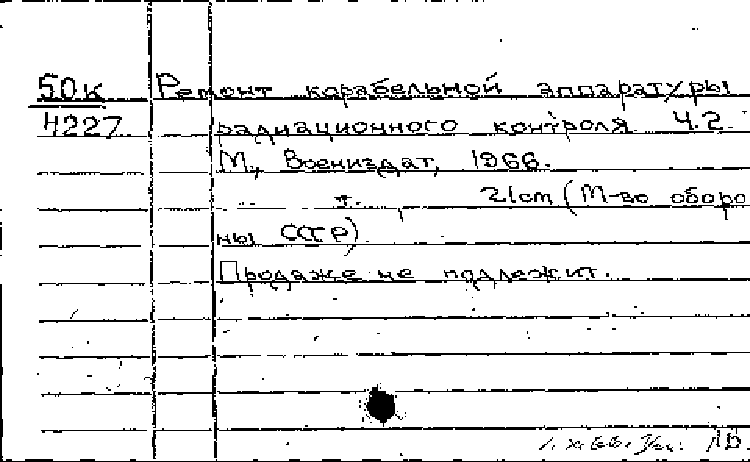 50к Ремонт корабельной аппаратуры
4227 радиационного контроля Ч.2.
М., Воениздат, 1966.
21cm (М-во оборо
ны СССР)
Продаже не подлежит.